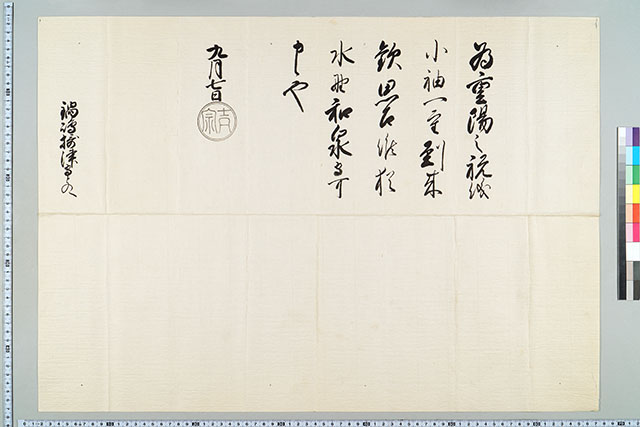 為重陽之祝儀
小袖一重到来
歓思召候猶
水野和泉守可
申也
九月七日
吉宗
鍋嶋摂津守との